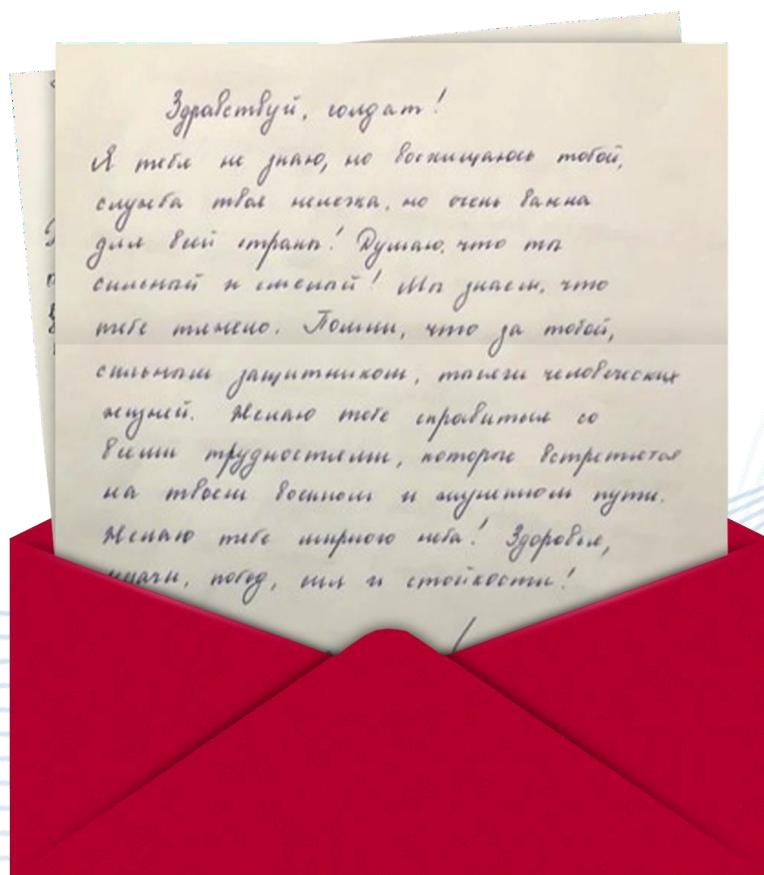 Здравствуй, солдат!
Я тебя не знаю, но восхищаюсь тобой,
служба твоя нелегка, но очень важна
для всей страны! Думаю, что ты
сильный и смелый! Мы знаем, что
тебе тяжело. Помни, что за тобой,
сильным защитником, тысячи человеческих
жизней. Желаю тебе справиться со
всеми трудностями, которые встретятся
на твоем военном и служебном пути.
Желаю тебе мирного неба! Здоровья,
удачи, побед, сил и стойкости!